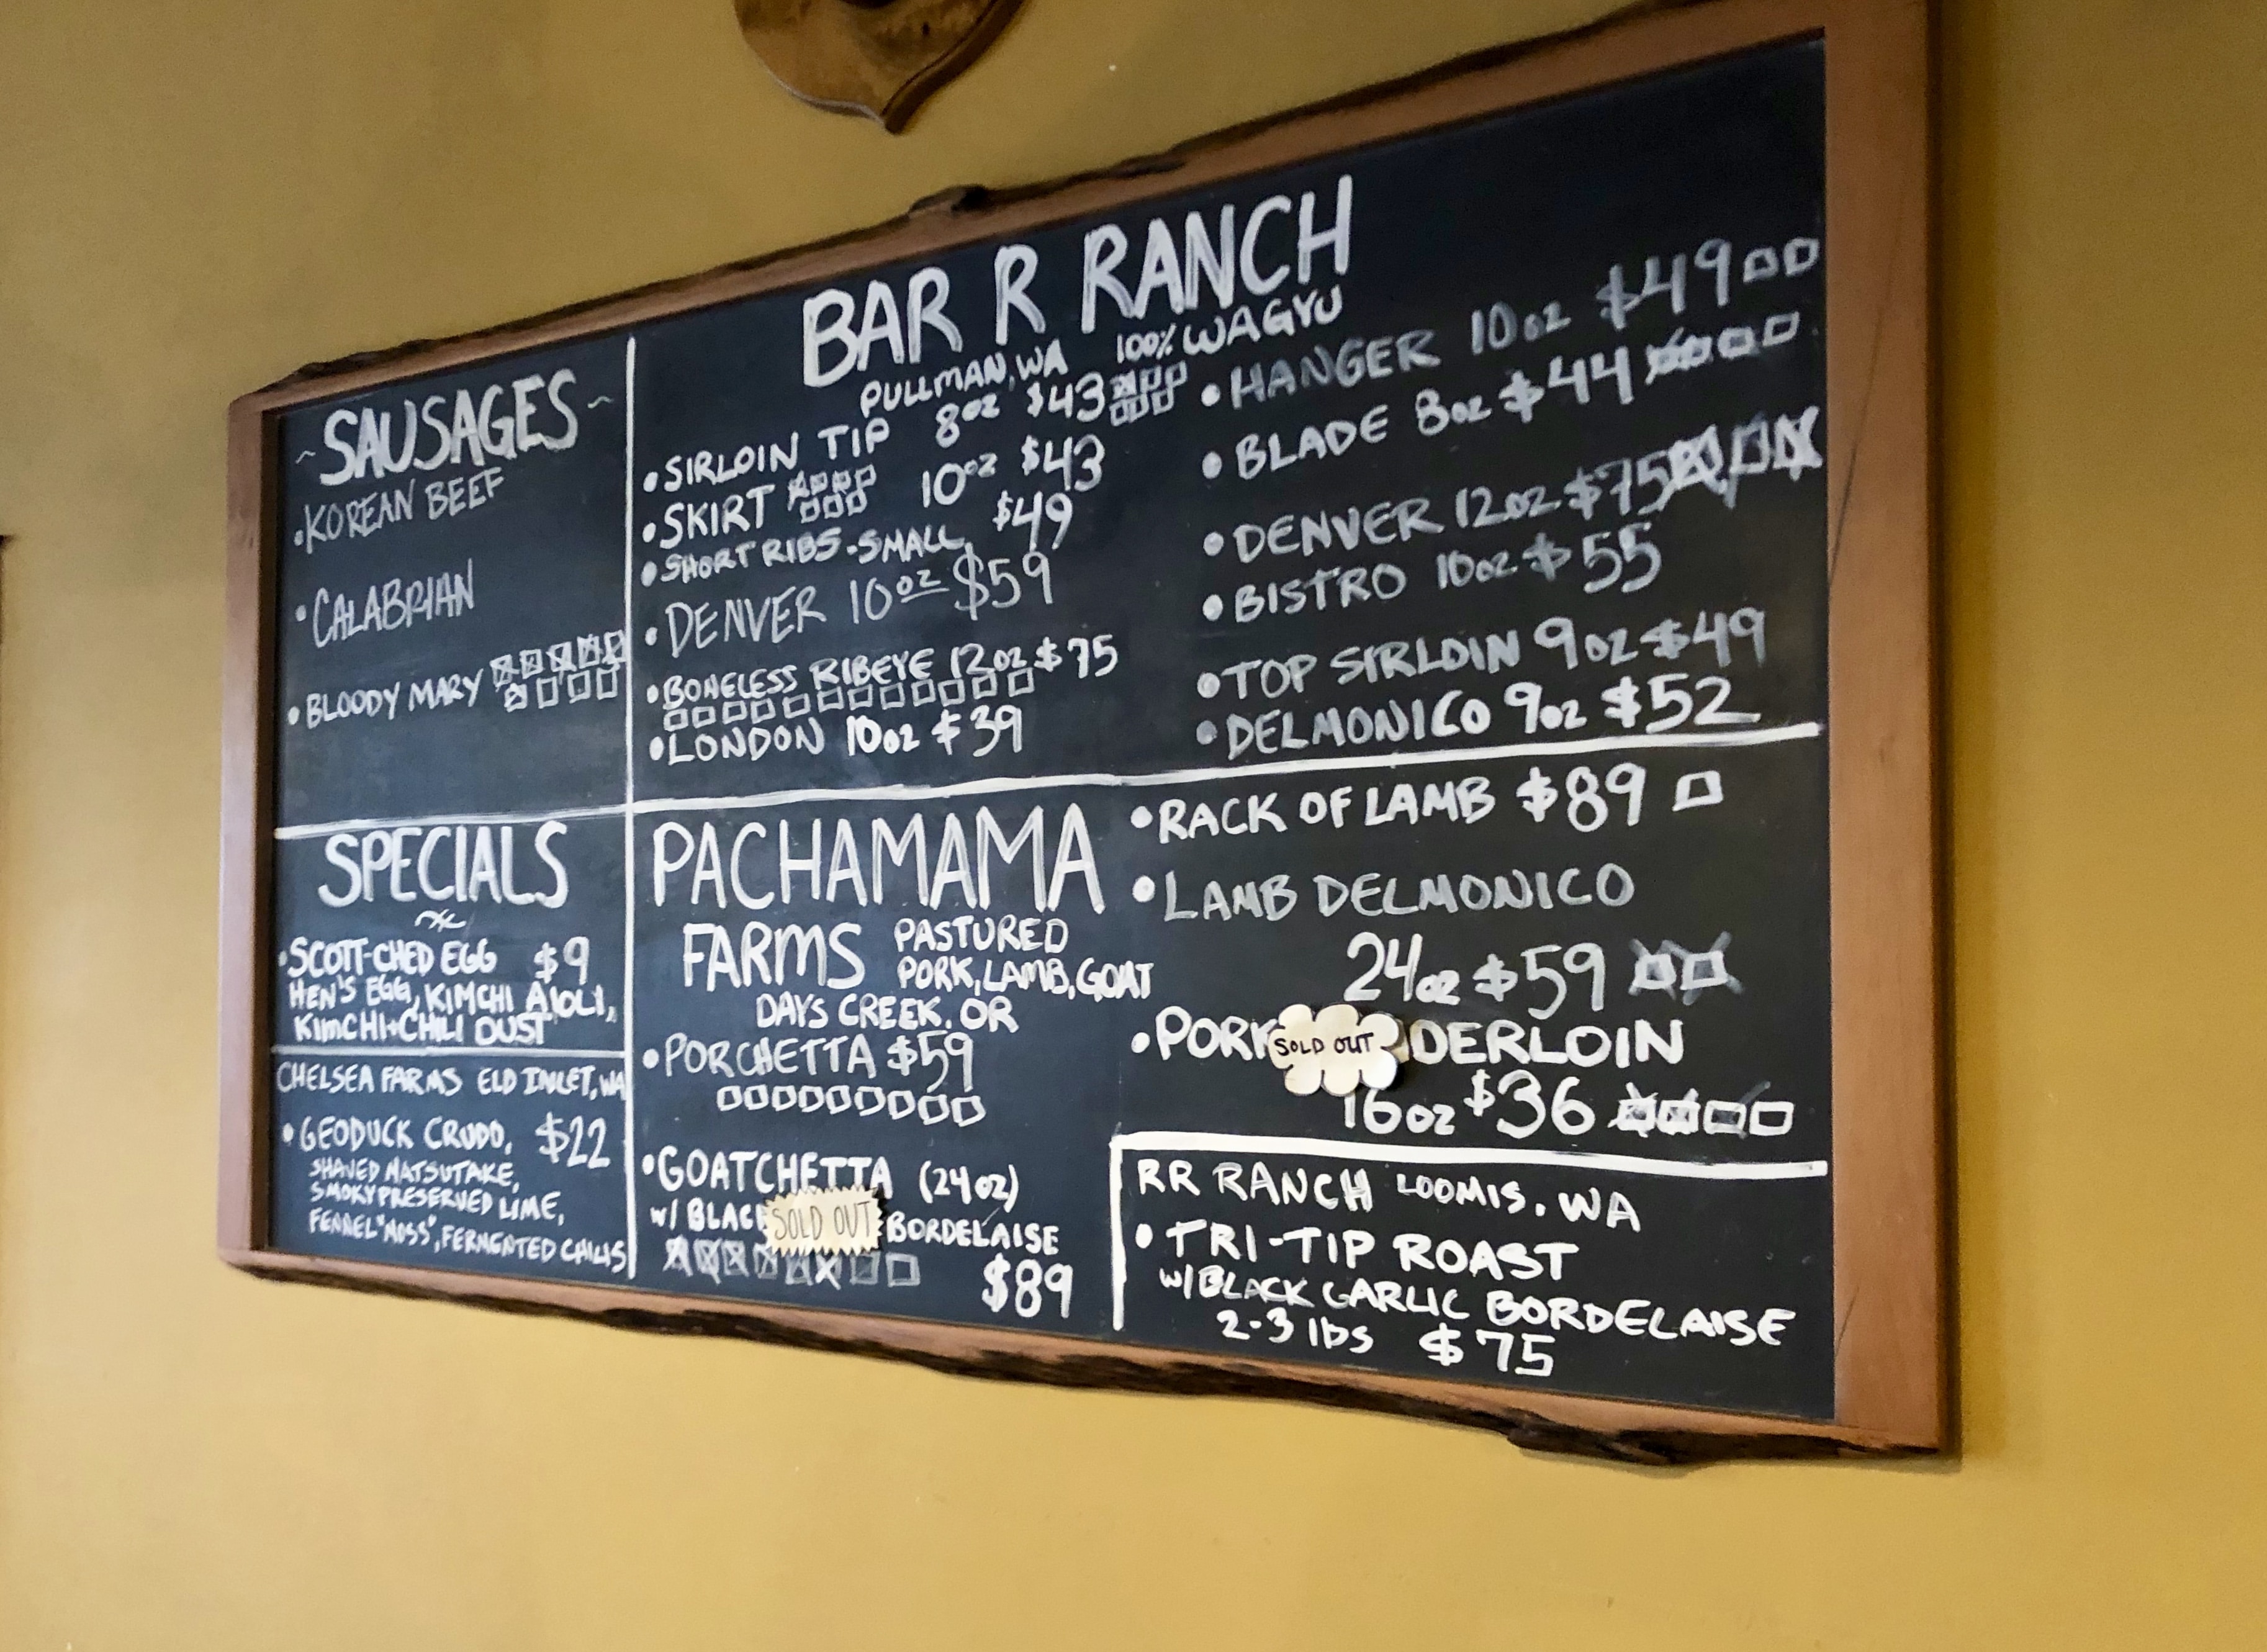 ~SAUSAGES~
•KOREAN BEEF
•CALABRIAN
•BLOODY MARY
BAR R RANCH
PULLMAN, WA 100% WAGYU
•SIRLOIN TIP 8oz $43
•SKIRT 10oz $43
•SHORT RIBS-SMALL $49
•DENVER 10oz $59
•BONELESS RIBEYE 12oz $75
•LONDON 10oz $39
•HANGER 10oz $49
•BLADE 8oz $44
•DENVER 12oz $75
•BISTRO 10oz $55
•TOP SIRLOIN 9oz $49
•DELMONICO 9oz $52
SPECIALS
•SCOTT-CHED EGG $9
HEN'S EGG, KIMCHI AIOLI,
KIMCHI+CHILI DUST
CHELSEA FARMS ELD INLET, WA
•GEODUCK CRUDO, $22
SHAVED MATSUTAKE,
SMOKY PRESERVED LIME,
FENNEL "MOSS", FERMENTED CHILIS
PACHAMAMA
FARMS PASTURED
PORK, LAMB, GOAT
DAYS CREEK, OR
•PORCHETTA $59
•GOATCHETTA (24oz)
W/ BLAC SOLD OUT BORDELAISE
$89
•RACK OF LAMB $89
•LAMB DELMONICO
24oz $59
•PORK SOLD OUT DERLOIN
16oz $36
RR RANCH LOOMIS, WA
•TRI-TIP ROAST
W/BLACK GARLIC BORDELAISE
2-3 lbs $75